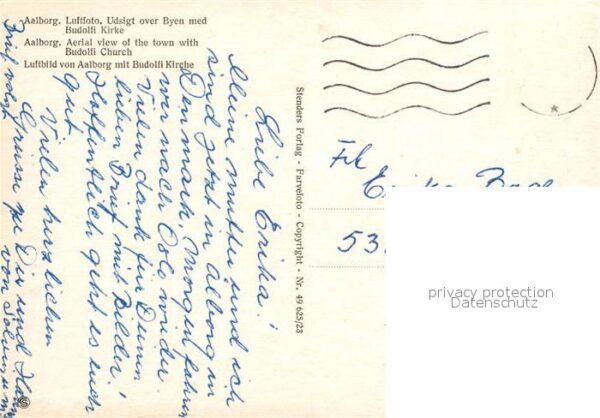 Aalborg. Luftfoto. Udsigt over Byen med
Budolfi Kirke
Aalborg. Aerial view of the town with
Budolfi Church
Luftbild von Aalborg mit Budolfi Kirche
Liebe Erika!
Meine mutter und ich
sind jetzt in Ålborg in
Denmark, Morgen fahren
wir nach Oslo wieder.
Vielen dank für Deinen
lieben Brief mit Bilder!
Hoffentlich geht es euch
gut.
Vielen herzlichen
Grüsse zu Dir und
von
Brief
Stenders Forlag - Farvefoto - Copyright - Nr. 49 625/23
Frl
Erika
53
privacy protection
Datenschutz